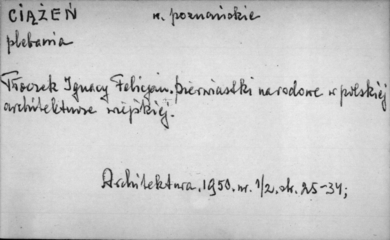 CIĄŻEŃ w. poznańskie
plebania
Tłoczek Ignacy Felicjan. pierwiastki narodowe w polskiej
architekturze wiejskiej.
Architektura. 1950. nr. 1/2. str. 25-34;